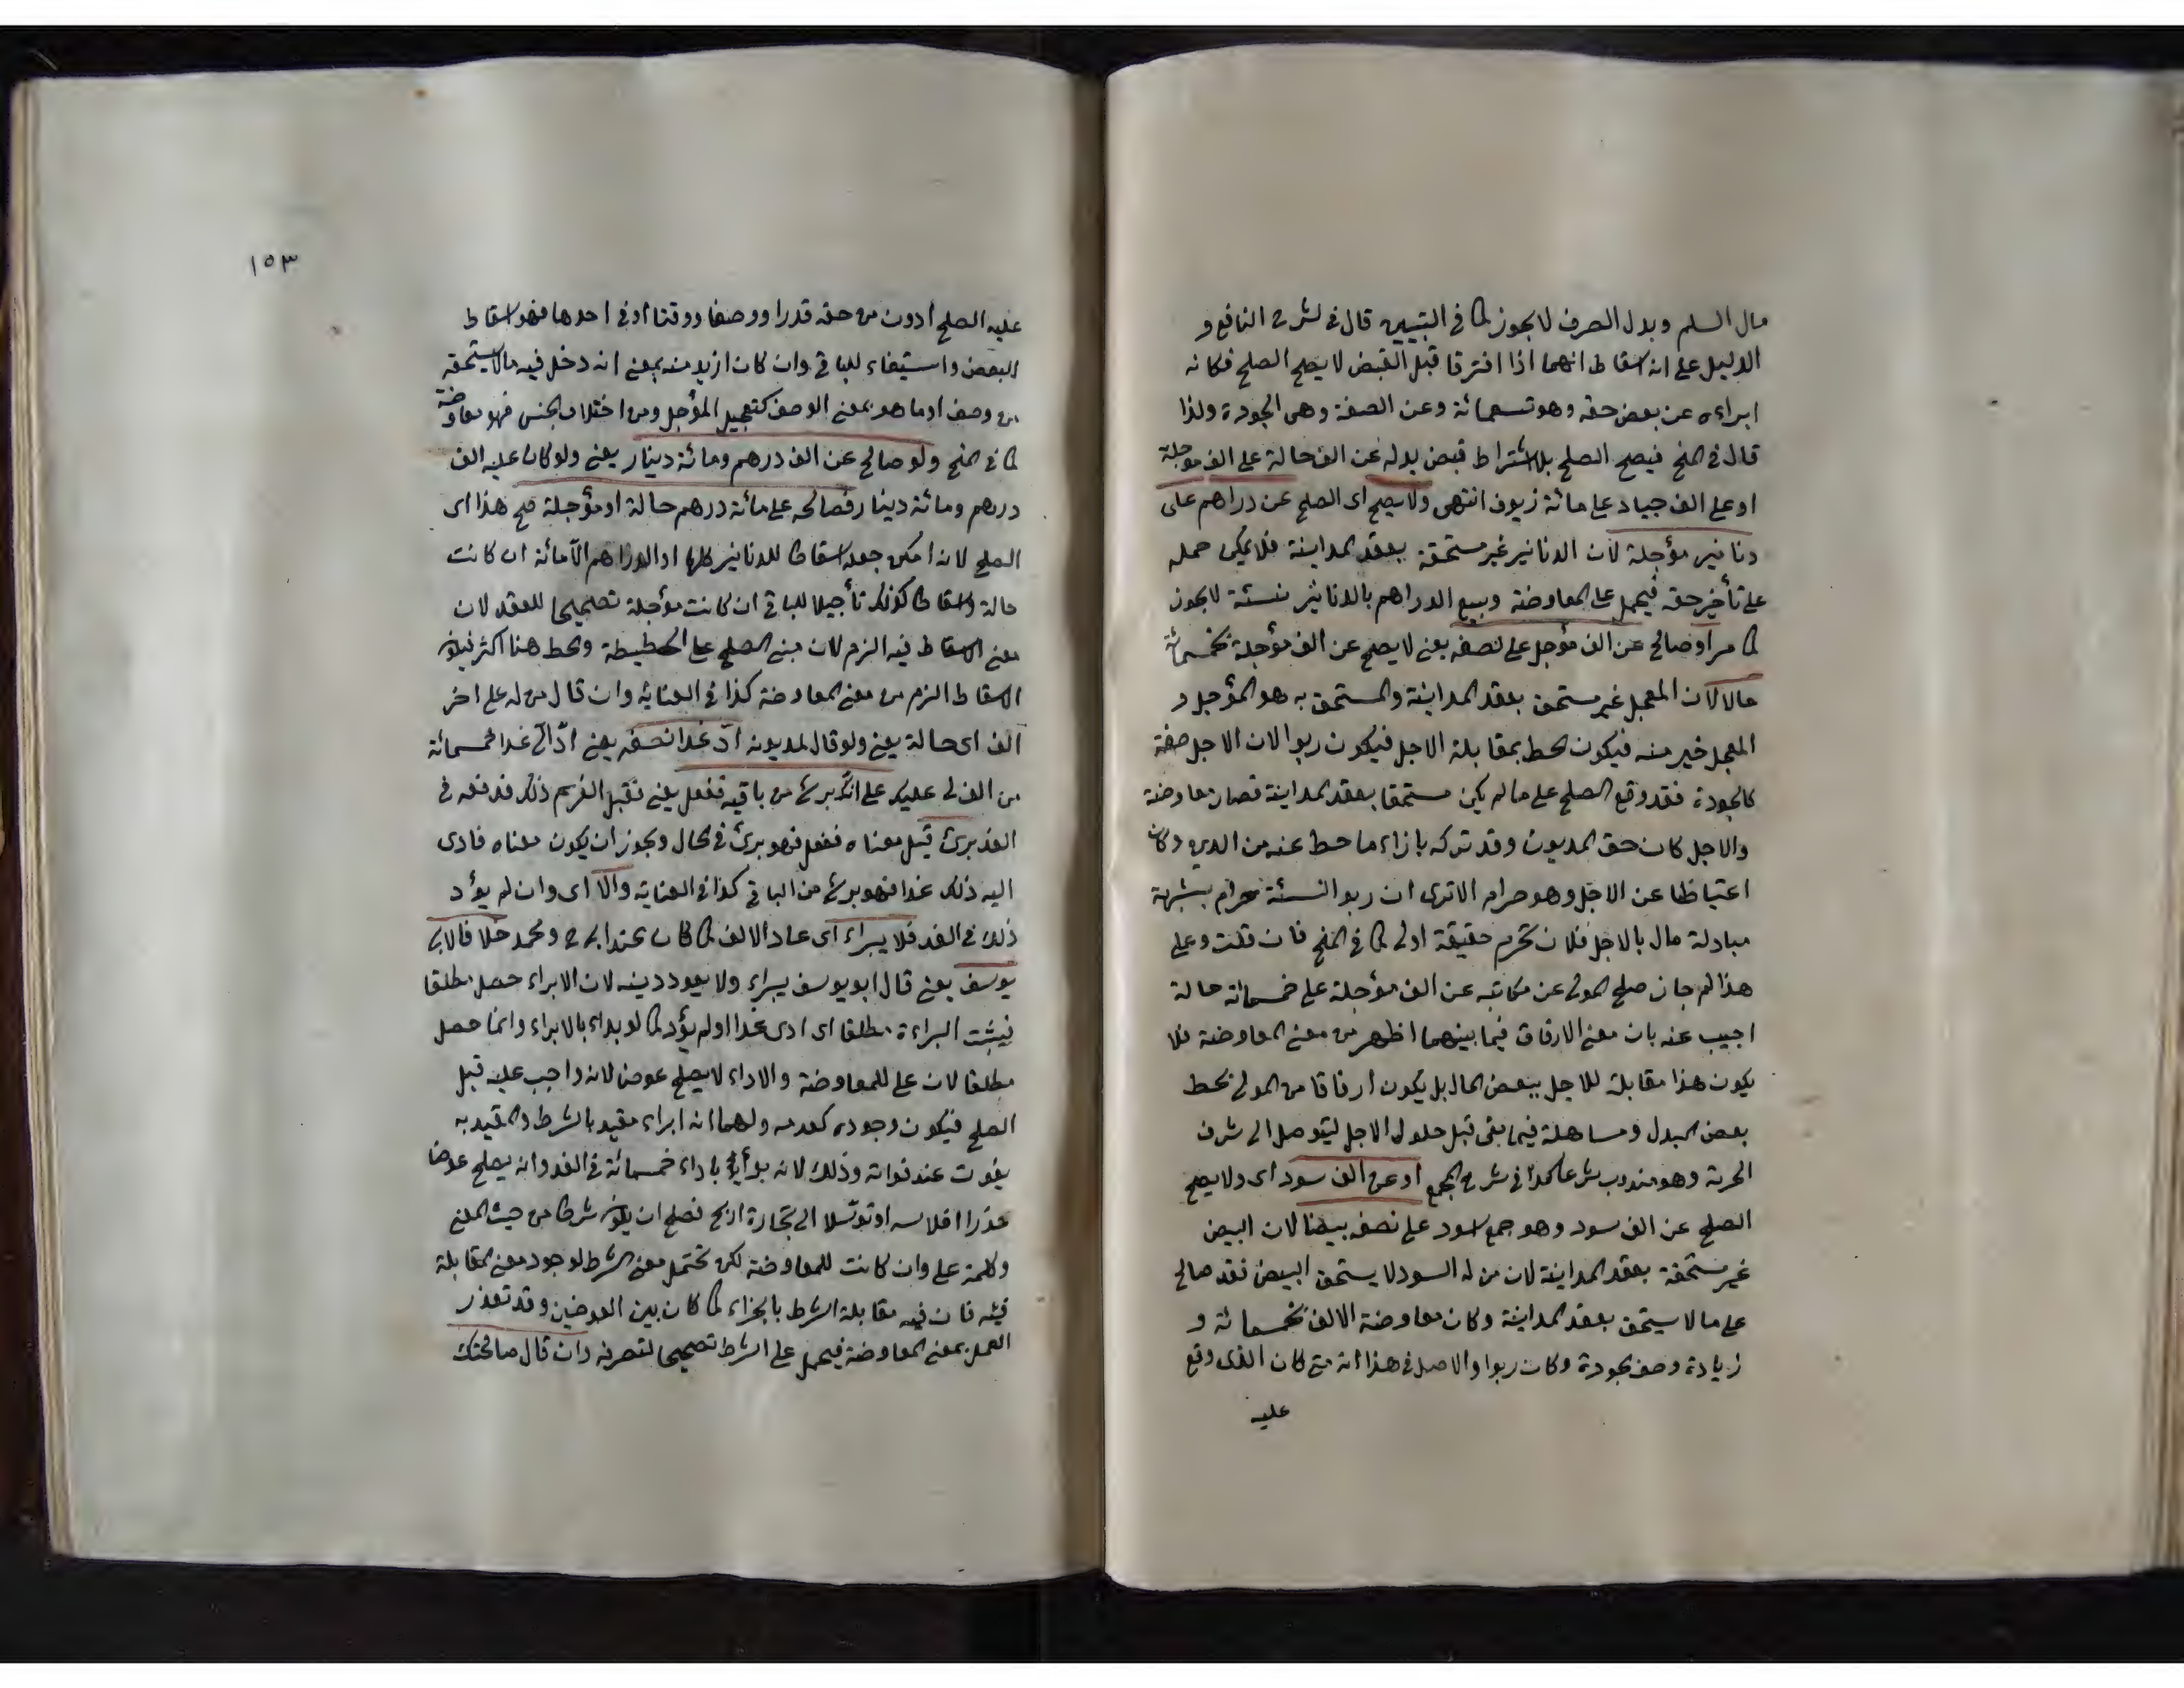 مال السلم وبدل الصرف لا يجوز كما فى التبيين قال فى شرح النافع و
الدليل على انه اسقاط انهما اذا افترقا قبل القبض لا يصح الصلح فكانه
ابراءه عن بعض حقه وهو تسعمائة وعن الصفة وهى الجودة ولذا
قال فى المنح فيصح الصلح بلا اشتراط قبض بدله عن الف حالة على الف مؤجلة
او على الف جياد على مائة زيوف انتهى ولا يصح اى الصلح عن دراهم على
دنانير مؤجلة لان الدنانير غير مستحقة بعقد المداينة فلا يمكن حمله
على تأخير حقه فيحمل على المعاوضة وبيع الدراهم بالدنانير نسئة لا يجوز
كما مر او صالح عن الف مؤجل على نصفه يعنى لا يصح عن الف مؤجلة بخمسمائة
حالا لان المعجل غير مستحق بعقد المداينة والمستحق به هو المؤجل و
المعجل خير منه فيكون الحط بمقابلة الاجل فيكون ربوا لان الاجل صفة
كالجودة فقد وقع الصلح على ما لم يكن مستحقا بعقد المداينة فصار معاوضة
والاجل كان حق المديون وقد تركه بازاء ما حط عنه من الدين وكان
اعتياظا عن الاجل وهو حرام الا ترى ان ربو النسئة حرام بشبهة
مبادلة مال بالاجل فلان تحرم حقيقة اولى كما فى المنح فان قلت وعلى
هذا لم جاز صلح المولى عن مكاتبه عن الف مؤجلة على خمسمائة حالة
اجيب عنه بان معنى الارفاق فيما بينهما اظهر من معنى المعاوضة فلا
يكون هذا مقابلة للاجل ببعض المال بل يكون ارفاقا من المولى بحط
بعض البدل ومساهلة فيما بقى قبل حلول الاجل ليتوصل الى شرف
الحرية وهو مندوب شرعا كذا فى شرح المجمع او عن الف سود اى ولا يصح
الصلح عن الف سود وهو جمع اسود على نصف بيضا لان البيض
غير مستحقة بعقد المداينة لان من له السود لا يستحق البيض فقد صالح
على ما لا يستحق بعقد المداينة وكان معاوضة الالف بخمسمائة و
زيادة وصف الجودة وكان ربوا والاصل فى هذا انه متى كان الذى وقع
عليه
١٥٣
عليه الصلح ادون من حقه قدرا ووصفا ووقتا او فى احدها فهو اسقاط
البعض واستيفاء للباقى وان كان ازيد منه بمعنى انه دخل فيه ما لا يستحقه
من وصف او ما هو بمعنى الوصف كتعجيل المؤجل ومن اختلاف الجنس فهو معاوضة
كما فى المنح ولو صالح عن الف درهم ومائة دينار يعنى ولو كان عليه الف
درهم ومائة دينار فصالحه على مائة درهم حالة او مؤجلة صح هذا اى
الصلح لانه امكن جعله اسقاطا للدنانير كلها او الدراهم الا مائة ان كانت
حالة واسقاطا كذلك تأجيلا للباقى ان كانت مؤجلة تصحيحا للعقد لان
معنى الاسقاط فيه الزم لان مبنى الصلح على الحطيطة والحط هنا اكثر فيكون
الاسقاط الزم من معنى المعاوضة كذا فى العناية وان قال من له على اخر
الف اى حالة يعنى ولو قال لمديونه ادّ غدا نصفه يعنى ادّ الىّ غدا خمسمائة
من الف لى عليك على انك برئ من باقيه ففعل يعنى فقبل الغريم ذلك فدفعه فى
الغد برئ قيل معناه ففعل فهو برئ فى الحال ويجوز ان يكون معناه فادى
اليه ذلك غدا فهو برئ من الباقى كذا فى العناية والا اى وان لم يؤد
ذلك فى الغد فلا يبراء اى عاد الالف كما كان عند ابى ح ومحمد خلافا لابى
يوسف يعنى قال ابو يوسف يبراء ولا يعود دينه لان الابراء حصل مطلقا
فيثبت البراءة مطلقا اى ادى غدا او لم يؤد كما لو بداء بالابراء وانما حصل
مطلقا لان على للمعاوضة والاداء لا يصلح عوضا لانه واجب عليه قبل
الصلح فيكون وجوده كعدمه ولهما انه ابراء مقيد بالشرط والمقيد به
يفوت عند فواته وذلك لانه بدأ باداء خمسمائة فى الغد وانه يصلح عوضا
حذرا افلاسه او توسلا الى تجارة اربح فصلح ان يكون شرطا من حيث المعنى
وكلمة على وان كانت للمعاوضة لكن تحتمل معنى الشرط لوجود معنى المقابلة
فيه فان فيه مقابلة الشرط بالجزاء كما كان بين العوضين وقد تعذر
العمل بمعنى المعاوضة فيحمل على الشرط تصحيحا لتصرفه وان قال صالحتك